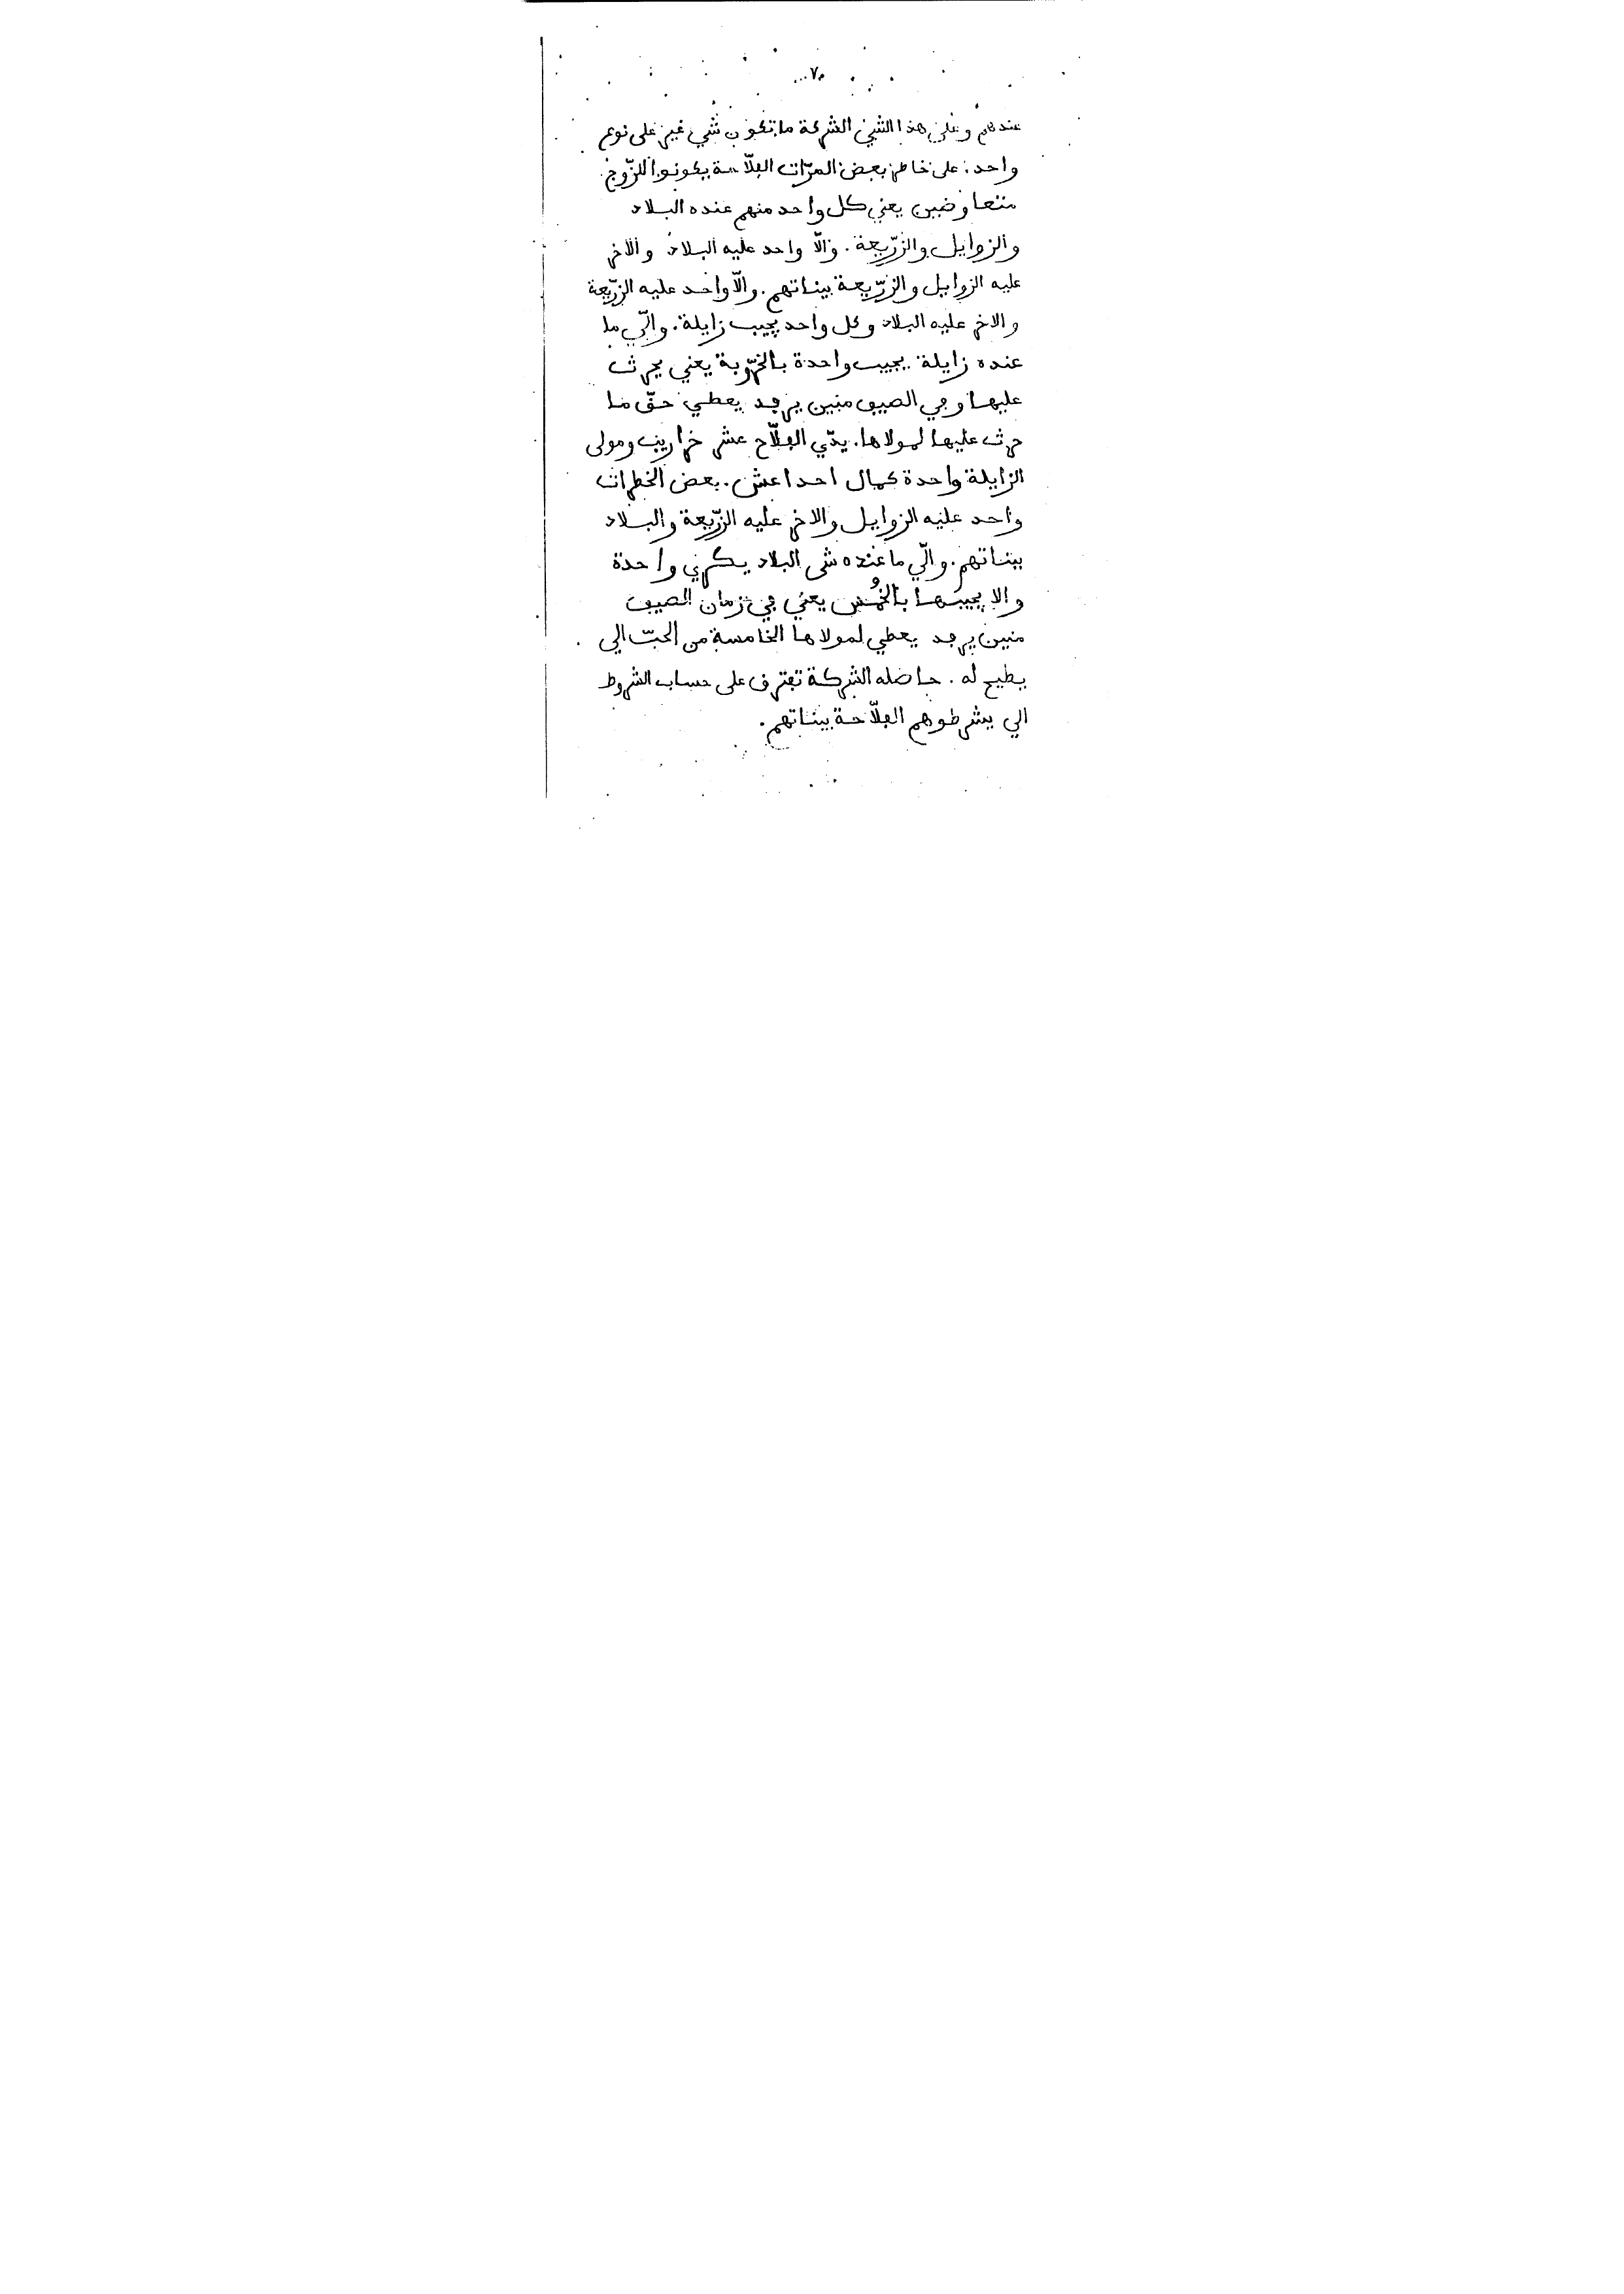 ٧٥
عندهم وعلى هذا الشي الشركة ما تكون شي غير على نوع
واحد: على خاطر بعض المرّات الڢلّاحة يكونوا للزّوج
متعاوضين يعني كل واحد منهم عنده البلاد
والزوايل والزرّيعة. والّا واحد عليه البلاد والاخر
عليه الزوايل والزرّيعة بيناتهم. والّا واحد عليه الزرّيعة
والاخر عليه البلاد وكل واحد يجيب زايلة. والّي ما
عنده زايلة يجيب واحدة بالخرّوبة يعني يحرث
عليها وڢي الصيڢ منين يرڢد يعطي حقّ ما
حرث عليها لمولاها. يدّي الڢلّاح عشر خراريب ومولى
الزايلة واحدة كمال احداعش. بعض الخطرات
واحد عليه الزوايل والاخر عليه الزرّيعة والبلاد
بيناتهم. والّي ما عنده شي البلاد يكري واحدة
والا يجيبها بالخُمُس يعني ڢي زمان الصيڢ
منين يرڢد يعطي لمولاها الخامسة من الحبّ الي
يطيح له. حاصله الشركة تڢترف على حساب الشروط
الي يشرطوهم الڢلّاحة بيناتهم.